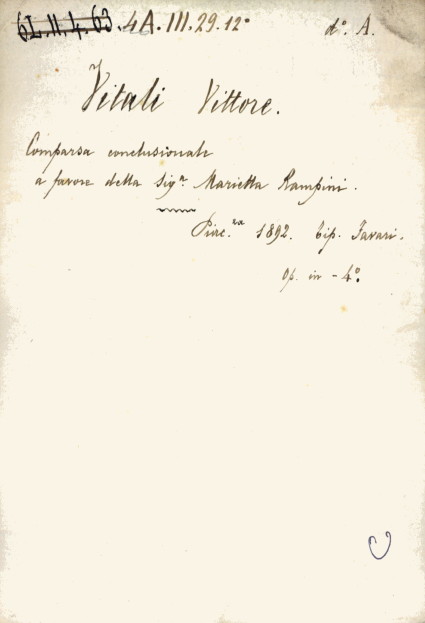 6L.II.4.63. 4A.III.29.12°
d°. A.
Vitali Vittore.
Comparsa conclusionale
a favore della Sigª. Marietta Rampini.
Piac.za 1892. Tip. Favari.
Op. in -4°.